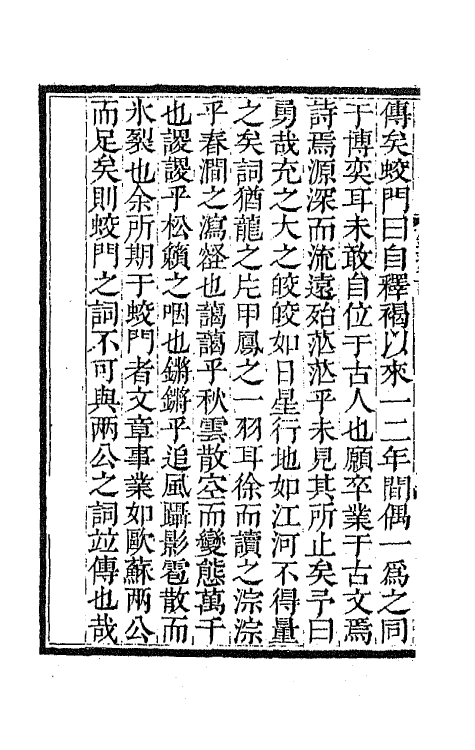 傳矣蛟門曰自釋褐以來一二年間偶一爲之同
于博奕耳未敢自位于古人也願卒業于古文焉
詩焉源深而流遠殆茫茫乎未見其所止矣予曰
勇哉充之大之皎皎如日星行地如江河不得量
之矣詞猶龍之片甲鳳之一羽耳徐而讀之淙淙
乎春澗之瀉壑也藹藹乎秋雲散空而變態萬千
也謖謖乎松籟之咽也鏘鏘乎追風躡影雹散而
氷裂也余所期于蛟門者文章事業如歐蘇兩公
而足矣則蛟門之詞不可與兩公之詞竝傳也哉